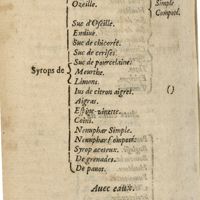 Ozeille.
Simple
Composé.
Suc d'Oseille.
Endiue.
Suc de chicorée.
Suc de cerises.
Suc de pourcelaine.
Syrops de
Meurthe.
Limons.
Ius de citron aigret.
Aigras.
Espine-vinette.
Coins.
Nenuphar Simple.
Nenuphar Composé.
Syrop aceteux.
De grenades.
De pauot.
Auec eaux.